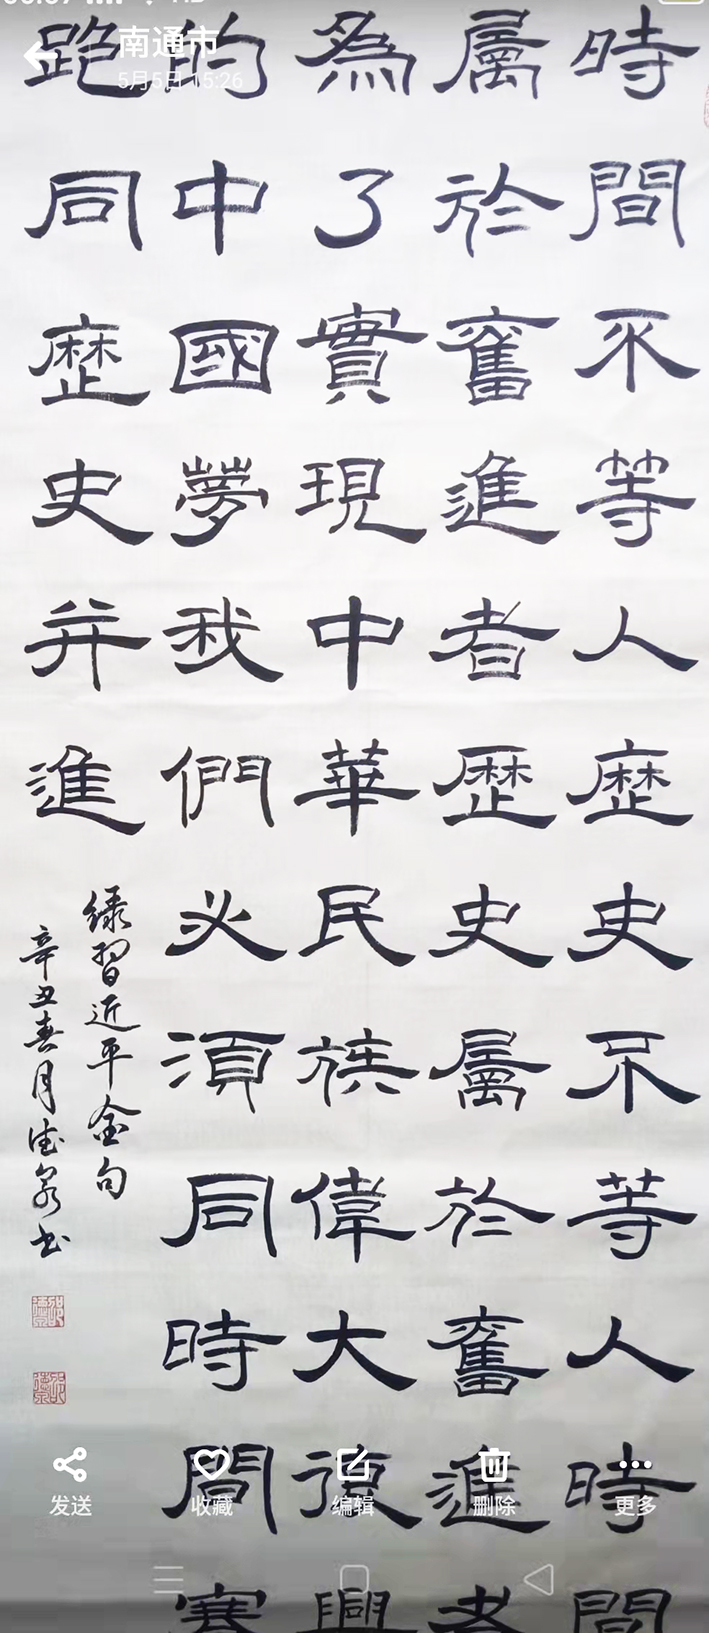 南通市
5月5日 15:26
時間不等人歷史不等人時間
屬於奮進者歷史屬於奮進者
為了實現中華民族偉大復興
的中國夢我們必須同時間賽
跑同歷史并進
緑習近平金句
辛丑春月德泉书
发送
收藏
编辑
删除
更多